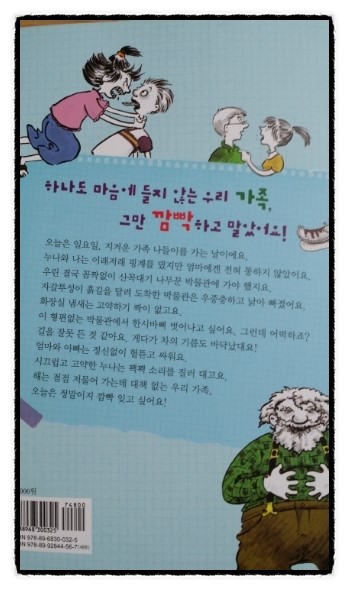 하나도 마음에 들지 않는 우리 가족,
그만 깜빡하고 말았어요!
오늘은 일요일, 지겨운 가족 나들이를 가는 날이에요.
누나와 나는 이래저래 핑계를 댔지만 엄마에겐 전혀 통하지 않았어요.
우린 결국 꼼짝없이 산꼭대기 나무꾼 박물관에 가야 했지요.
자갈투성이 흙길을 달려 도착한 박물관은 우중충하고 낡아 빠졌어요.
화장실 냄새는 고약하기 짝이 없고요.
이 형편없는 박물관에서 한시바삐 벗어나고 싶어요. 그런데 어떡하죠?
길을 잘못 든 것 같아요. 게다가 차의 기름도 바닥났대요!
엄마와 아빠는 정신없이 헐뜯고 싸워요.
시끄럽고 고약한 누나는 꽥꽥 소리를 질러 대고요.
해는 점점 저물어 가는데 대책 없는 우리 가족,
오늘은 정말이지 깜빡 잊고 싶어요!
000원
74800
ISBN 978-89-6830-032-5
ISBN 978-89-92844-56-7(세트)